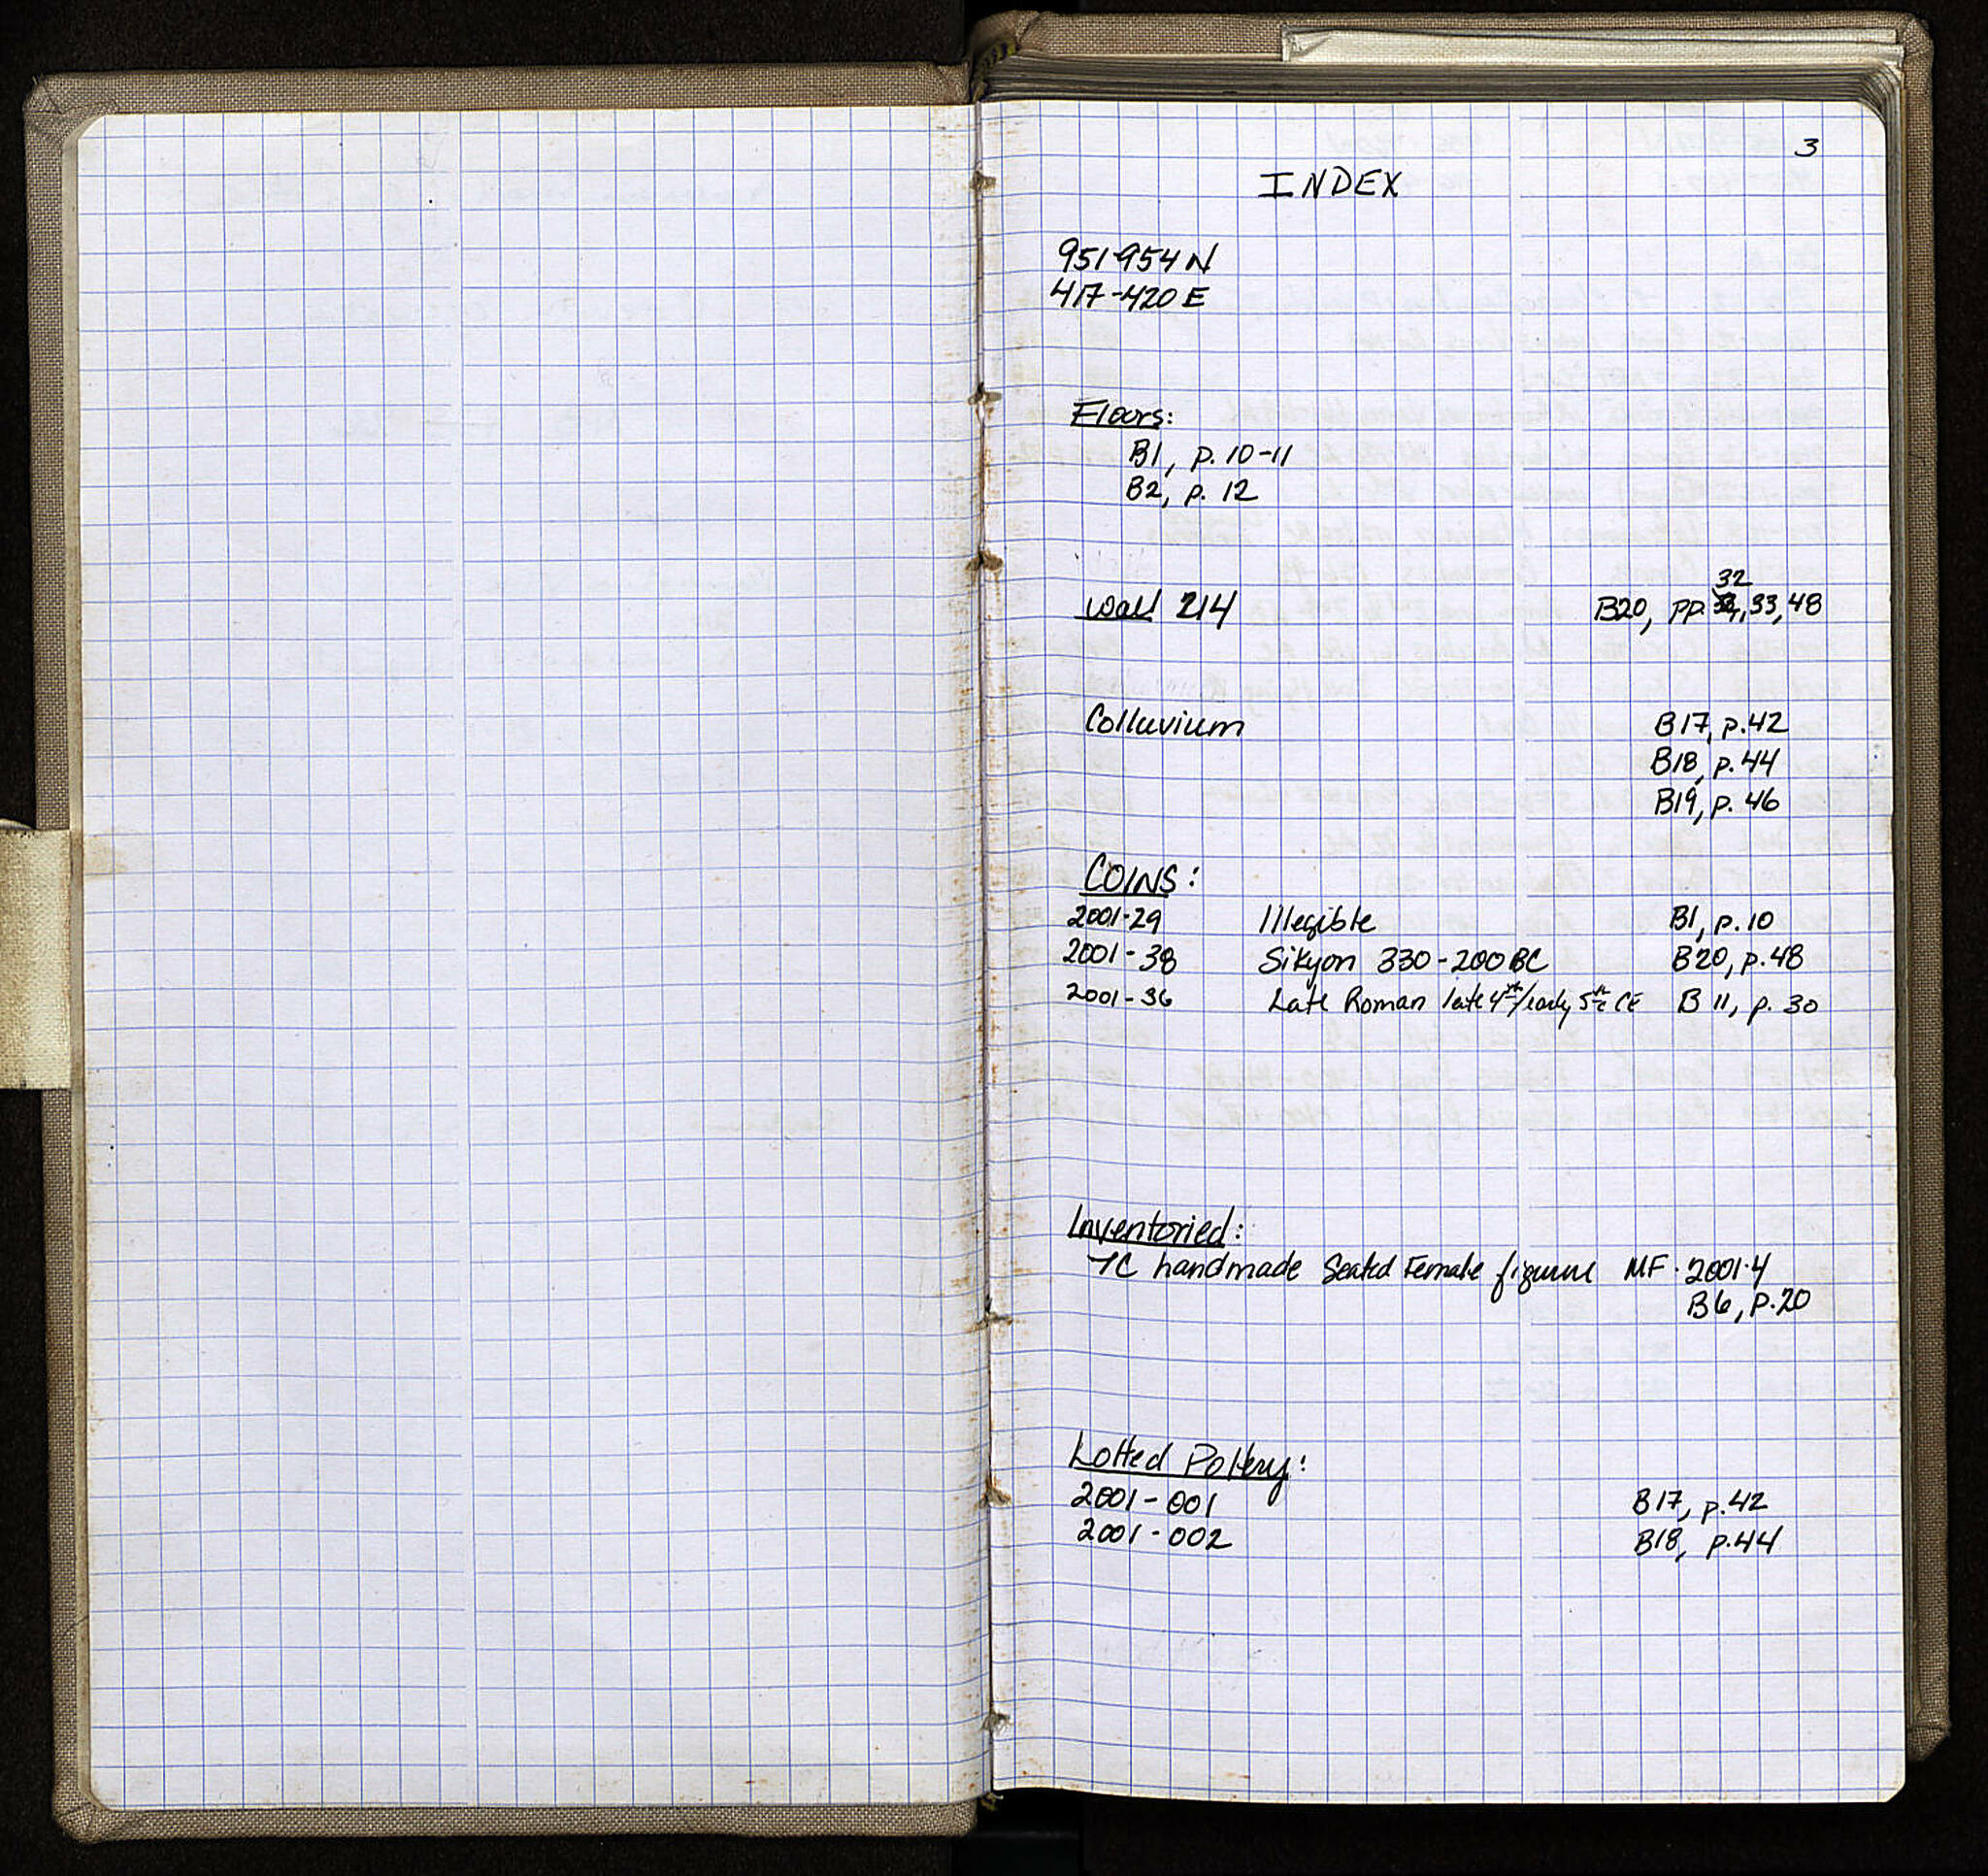 3
INDEX
951-954 N
417-420 E
Floors:
B1, p. 10-11
B2, p. 12
32
Wall 214 B20, pp. , 33, 48
Colluvium B17, p. 42
B18, p. 44
B19, p. 46
COINS:
2001-29 Illegible B1, p. 10
2001-38 Sikyon 330-200 BC B20, p. 48
2001-36 Late Roman late 4th/early 5th c CE B 11, p. 30
Inventoried:
TC handmade Seated Female figurine MF·2001·4
B6, p. 20
Lotted Pottery:
2001-001 B17, p. 42
2001-002 B18, p. 44